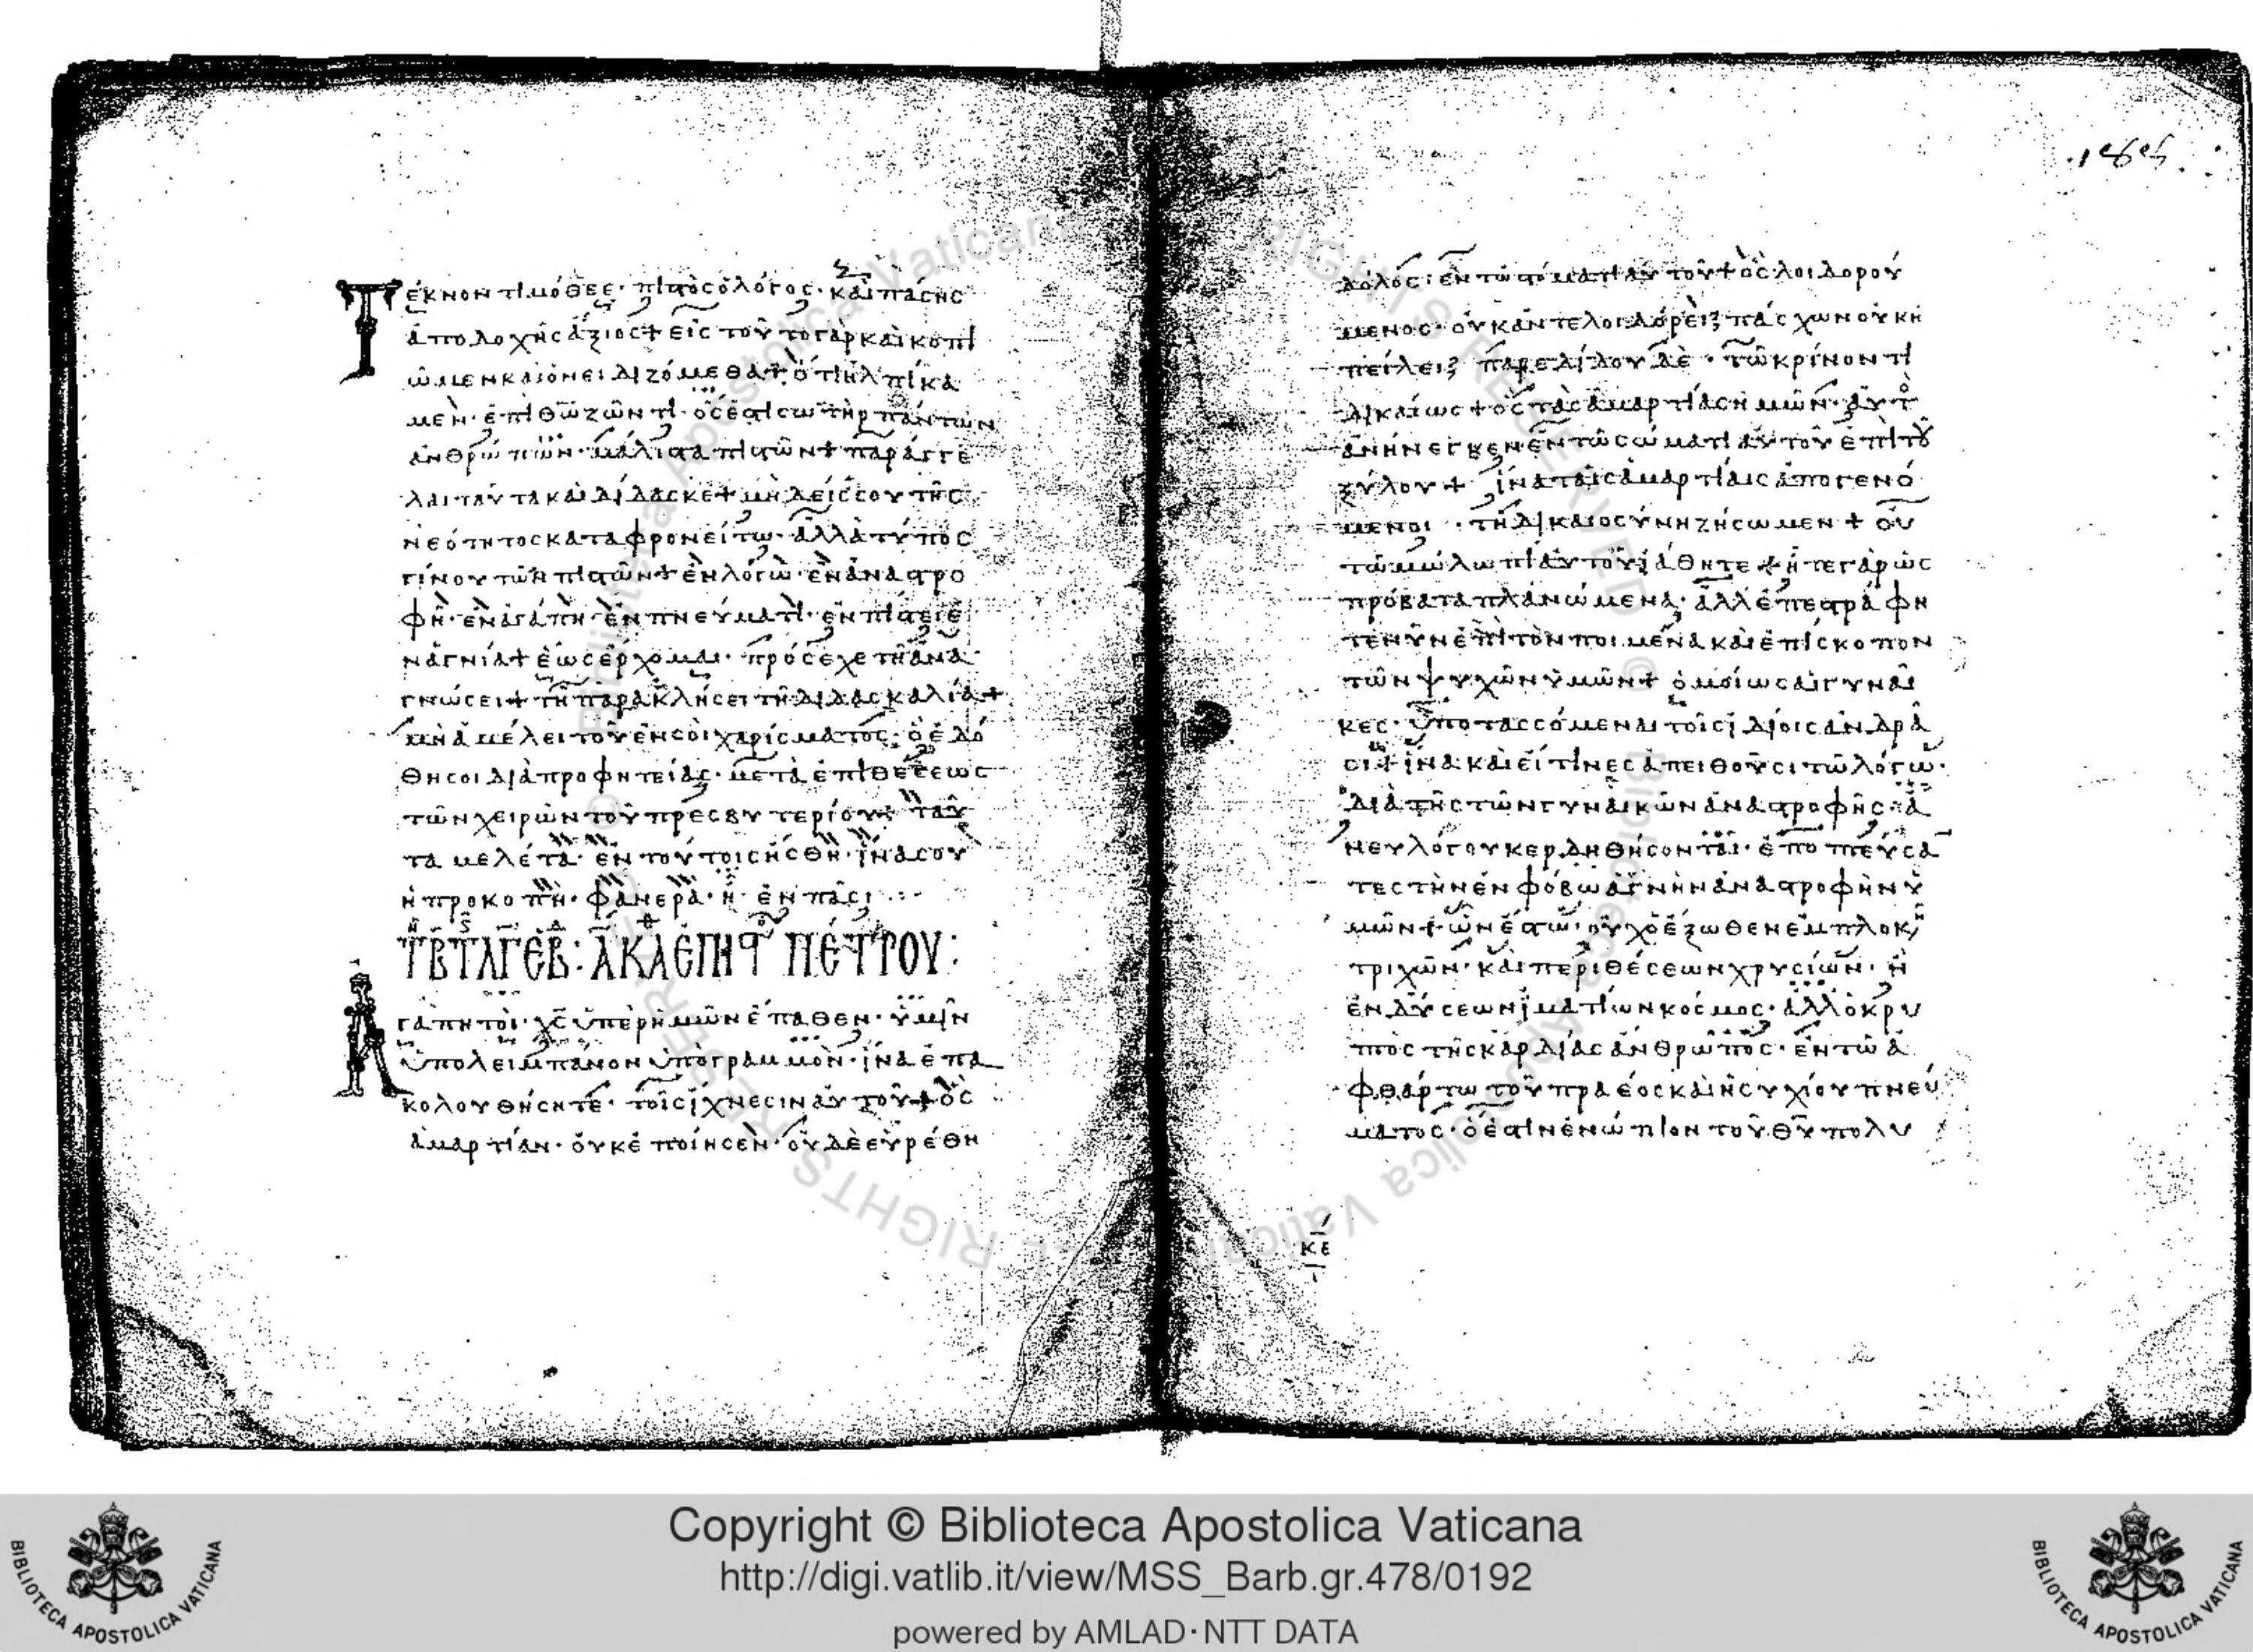 Τέκνον τιμόθεε· πιστὸς ὁ λόγος· καὶ πάσης
ἀποδοχῆς ἄξιος + εἰς τοῦτο γὰρ καὶ κοπι
ῶμεν καὶ ὀνειδιζόμεθα + ὅτι ἠλπίκα
μεν· ἐπὶ θῶ ζῶντι· ὅς ἐστι σωτὴρ πάντων
ἀνθρώπων· μάλιστα πιστῶν + παράγγε
λαι ταῦτα καὶ δίδασκε + μηδείς σου τῆς
νεότητος καταφρονείτω· ἀλλὰ τύπος
γίνου τῶν πιστῶν + ἐν λόγω· ἐν ἀναστρο
φῆ· ἐν ἀγάπη· ἐν πνεύματι· ἐν πίστει ἐ
ν ἁγνία + ἕως ἔρχομαι· πρόσεχε τῆ ἀνα
γνώσει + τῆ παρακλήσει τῆ διδασκαλία +
μὴ ἀμέλει τοῦ ἐν σοὶ χαρίσματος· ὃ ἐδό
θη σοι διὰ προφητείας· μετὰ ἐπιθέσεως
τῶν χειρῶν τοῦ πρεσβυτερίου + ταῦ
τα μελέτα· ἐν τούτοις ἴσθη· ἵνα σου
ἡ προκοπὴ· φανερὰ· ἦ· ἐν πᾶσι
πέτρου:
Ἀγαπητοὶ· χς ὑπὲρ ἡμῶν ἔπαθεν· ὑμῖν
ὑπολειμπάνον ὑπογραμμὸν· ἵνα ἐπα
κολουθήσητε· τοῖς ἴχνεσιν αὐτοῦ + ὃς
ἁμαρτίαν· οὐκ ἐποίησεν· οὐδὲ εὑρέθη
δόλος· ἐν τῶ στόματι αὐτοῦ + ὃς λοιδορού
μενος· οὐκ ἀντελοιδόρει· πάσχων οὐκ ἠ
πείλει· παρεδίδου δὲ· τῶ κρίνοντι
δικαίως + ὃς τὰς ἁμαρτίας ἡμῶν· αὐτὸ
ἀνήνεγκεν ἐν τῶ σώματι αὐτοῦ ἐπὶ τὸ
ξύλου + ἵνα ταῖς ἁμαρτίαις ἀπογενό
μενοι· τῆ δικαιοσύνη ζήσωμεν + οὗ
τῶ μώλωπι αὐτοῦ ἰάθητε + ἦτε γὰρ ὡς
πρόβατα πλανώμενα· ἀλλ ἐπεστράφη
τε νῦν ἐπὶ τὸν ποιμένα καὶ ἐπίσκοπον
τῶν ψυχῶν ὑμῶν + ὁμοίως αἱ γυναῖ
κες· ὑποτασσόμεναι τοῖς ἰδίοις ἀνδρά
σι + ἵνα καὶ εἴ τινες ἀπειθοῦσι τῶ λόγω·
διὰ τῆς τῶν γυναικῶν ἀναστροφῆς· ἄ
νευ λόγου κερδηθήσονται· ἐποπτεύσα
τες τὴν ἐν φόβω ἁγνὴν ἀναστροφὴν ὑ
μῶν + ὧν ἔστω· οὐχ ὁ ἔξωθεν ἐμπλοκῆ
τριχῶν· καὶ περιθέσεων χρυσίων· ἢ
ἐνδύσεων ἱματίων κοσμος· ἀλλ ὁ κρυ
πτὸς τῆς καρδίας ἄνθρωπος· ἐν τῶ ἀ
φθάρτω τοῦ πραέος καὶ ἡσυχίου πνεύ
ματος· ὅ ἐστιν ἐνώπιον τοῦ θῦ πολυ
κε
Copyright © Biblioteca Apostolica Vaticana
http://digi.vatlib.it/view/MSS_Barb.gr.478/0192
powered by AMLAD·NTT DATA
BIBLIOTECA APOSTOLICA VATICANA
BIBLIOTECA APOSTOLICA VATICANA